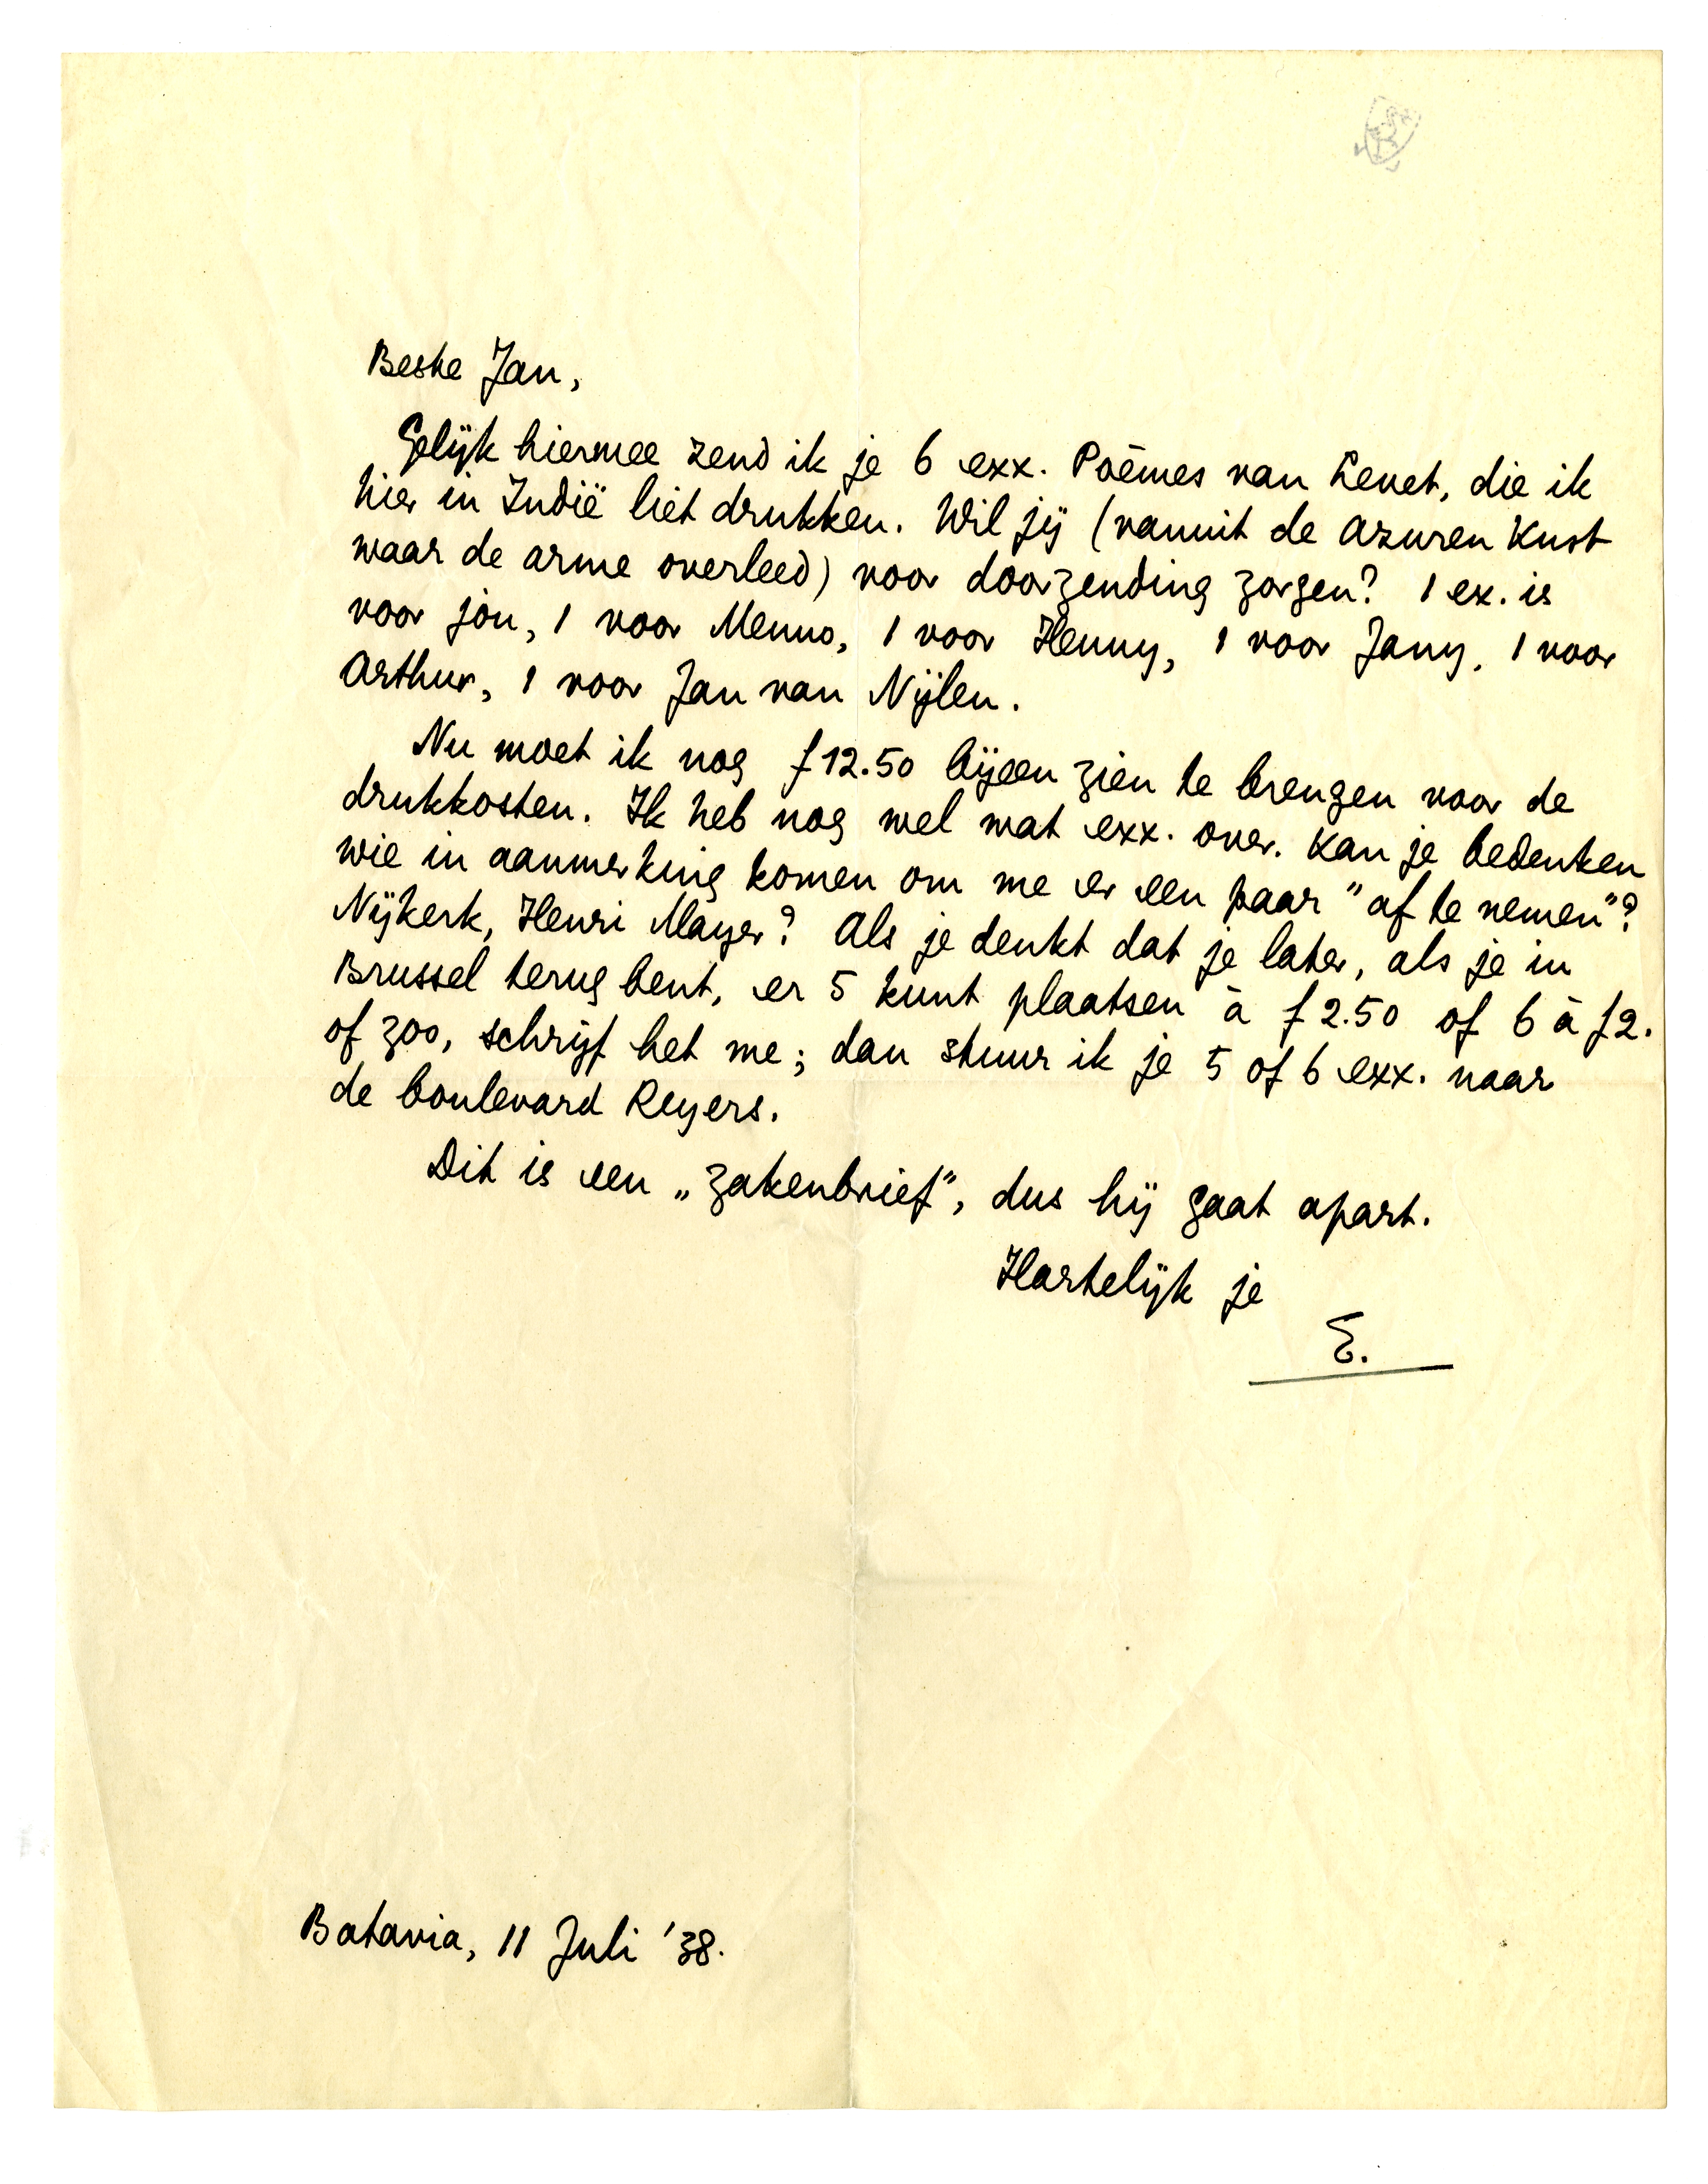 Beste Jan,
Gelijk hiermee zend ik je 6 exx. Poèmes van Levet, die ik
hier in Indië liet drukken. Wil jij (vanuit de Azuren Kust
waar de arme overleed) voor doorzending zorgen? 1 ex. is
voor jou, 1 voor Menno, 1 voor Henny, 1 voor Jany, 1 voor
Arthur, 1 voor Jan van Nijlen.
Nu moet ik nog f 12.50 bijeen zien te brengen voor de
drukkosten. Ik heb nog wel wat exx. over. Kan je bedenken
wie in aanmerking komen om me er een paar "af te nemen"?
Nijkerk, Henri Mayer? Als je denkt dat je later, als je in
Brussel terug bent, er 5 kunt plaatsen à f 2.50 of 6 à f 2.
of zoo, schrijf het me; dan stuur ik je 5 of 6 exx. naar
de boulevard Reyers.
Dit is een „zakenbrief", dus hij gaat apart.
Hartelijk je
E.
Batavia, 11 Juli '38.